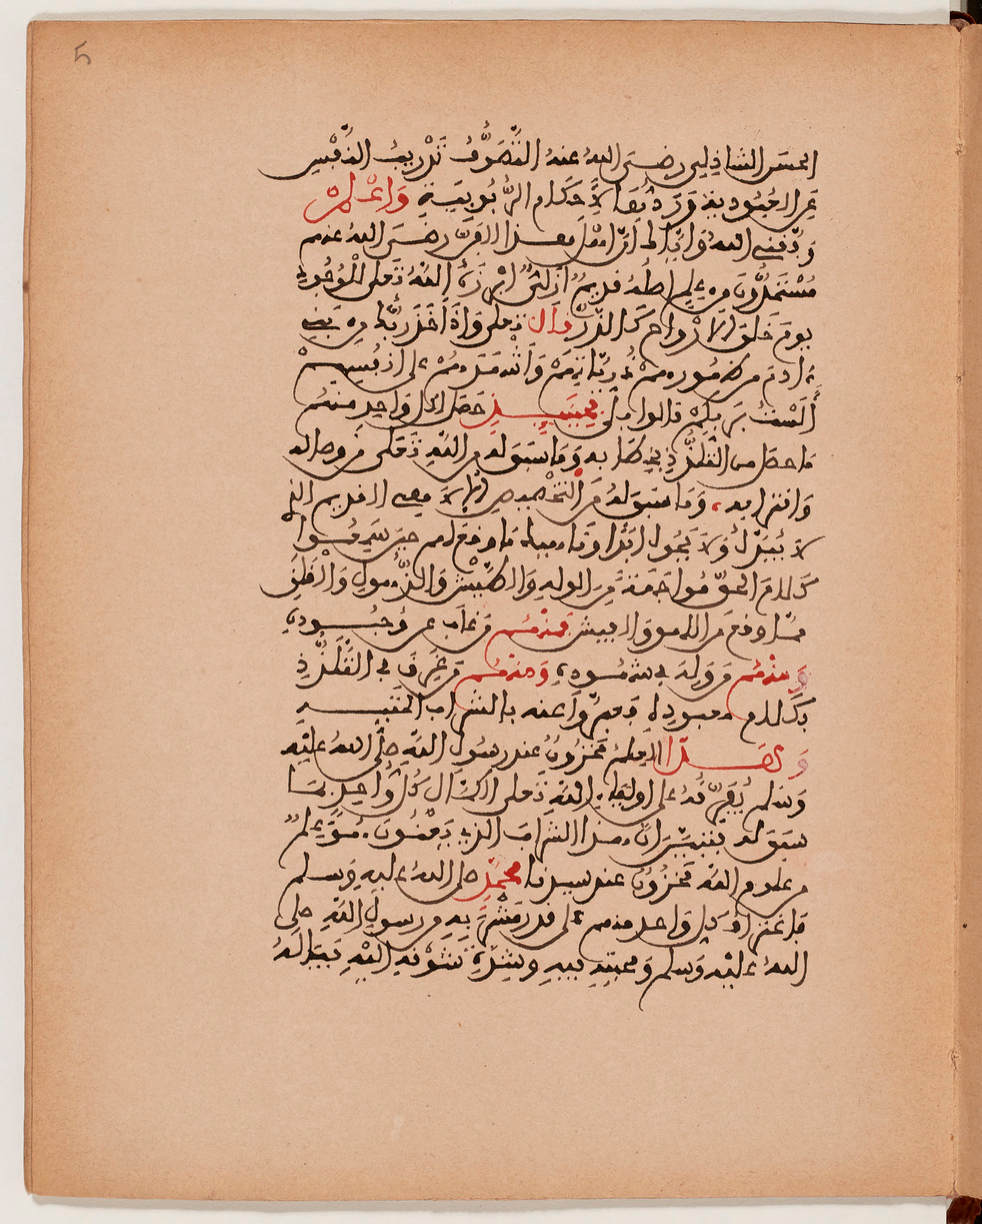 5
الحسن الشاذلي رضي الله عنه التَّصَوُّف تَدْرِيبُ النَّفْسِ
على العبودية وَرَدُّهَا لِأَحكام الرُّبُوبِيَةِ وَاعْلَمْ
وفقني الله وَإياك ان اهل هذا الفن رضي الله عنهم
مُسْتَمَدُّونَ من علم الله قديمٌ أزليٌّ أبرزه الله تعلى للوجود
يوم خلق الارواح كالذر قال تعلى وَإِذَ اخَذَ رَبُّكَ مِن بني
ءادم من ظهورهم ذُرِّيَّاتِهِمْ وَأَشْهَدَهُمْ على أنفسهم
أَلَسْتُ بِرَبِّكُمْ قالوا بلى فحينئذ حصل لكل واحد منهم
ما حصل من التَّلَذُّذِ بخطابه وَمَا سَبَقَ له من الله تعلى من وصاله
واقترابه، وَمَا سبق لهُ مِنَ التخصيص
لا يُبَدَّلُ وَلَا يَحُولُ ابَدًا ما وقع لهم حين سمعوا
كلام الحقّ مُواجهة من الوله وَالطَّيْشِ وَالذُّهولِ وَالْقَلَقِ
ممّا وقع من فمنهم من غاب عن وُجُوده
وَمنهُم مَن وَلِهَ في شهوده، وَمنهُم من غرق في التَّلَذُّذِ
بكلام معبوده فعبّروا عنه بالشراب
وَهَذا العلم مخزون عند رسُول اللهِ صلّى اللهُ عليْهِ
وَسَلم يُفَرِّقُهُ على اولياء الله تعلى الاكمال كُلُّ وَاحِدٍ بمَا
سبق له فتبيّن انّ هذا الشراب الذي يَعْنُونَ هُوَ علمٌ
من علوم الله مخزون عند سيدنا محمد صلى الله عليه وسلم
كل وَاحد منهم على قدر مَشْرَبِهِ من رسول الله صلى
اللهُ عليْه وَسلم وَمحبته فيه وشدّة شوقه اليْهِ